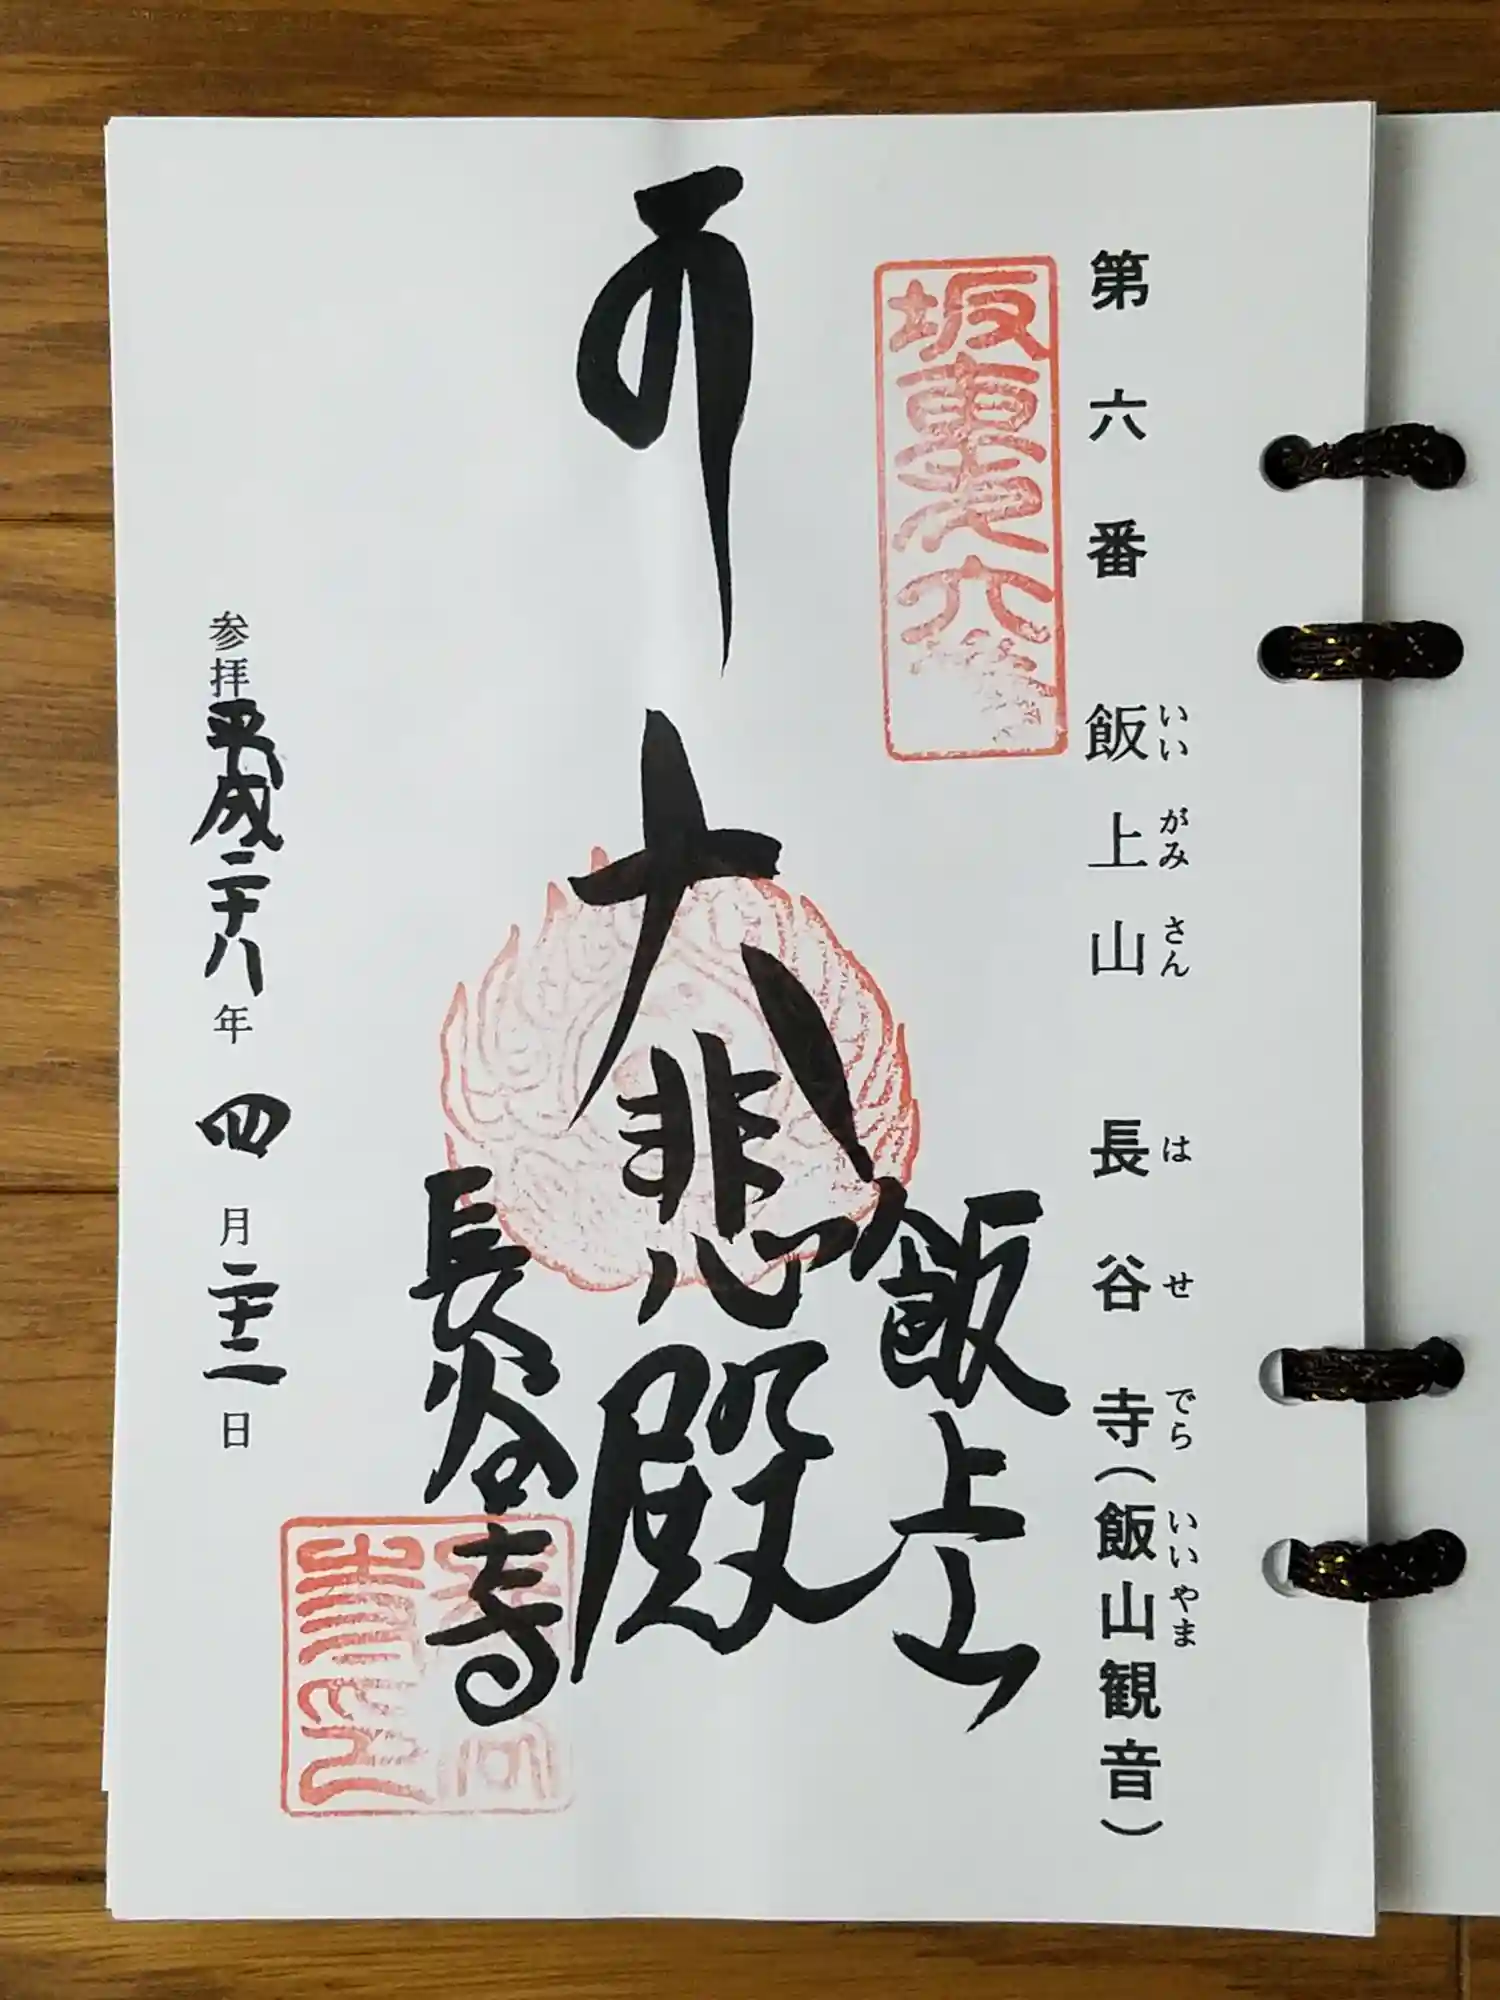 第六番 飯上山 長谷寺(飯山観音)
いいがみさん はせでら いいやま
坂東
六
大悲殿
飯上山
長谷寺
参拝平成二十八年四月二十二日